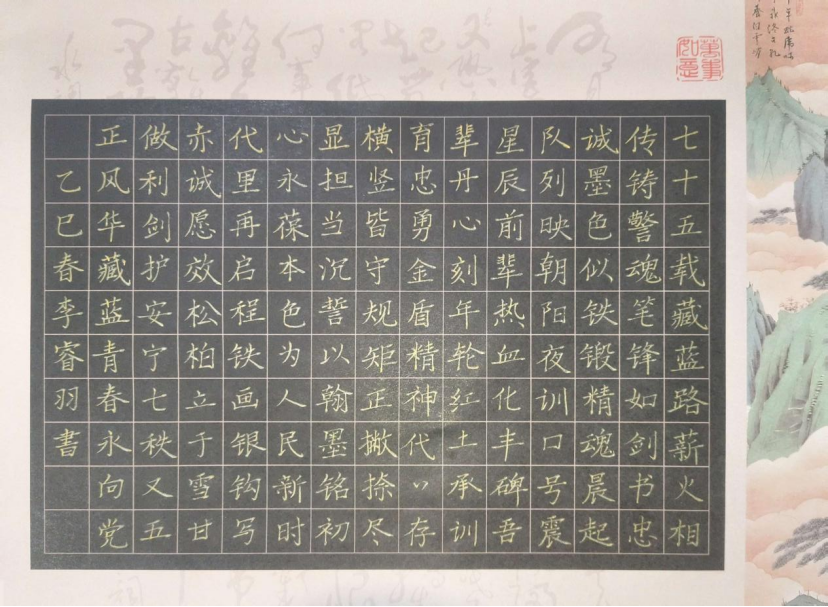 七十五载藏蓝路薪火相
传铸警魂笔锋如剑书忠
诚墨色似铁锻精魂晨起
队列映朝阳夜训口号震
星辰前辈热血化丰碑吾
辈丹心刻年轮红土承训
育忠勇金盾精神代〻存
横竖皆守规矩正撇捺尽
显担当沉誓以翰墨铭初
心永葆本色为人民新时
代里再启程铁画银钩写
赤诚愿效松柏立于雪甘
做利剑护安宁七秩又五
正风华藏蓝青春永向党
乙巳春李睿羽書
萬事如意